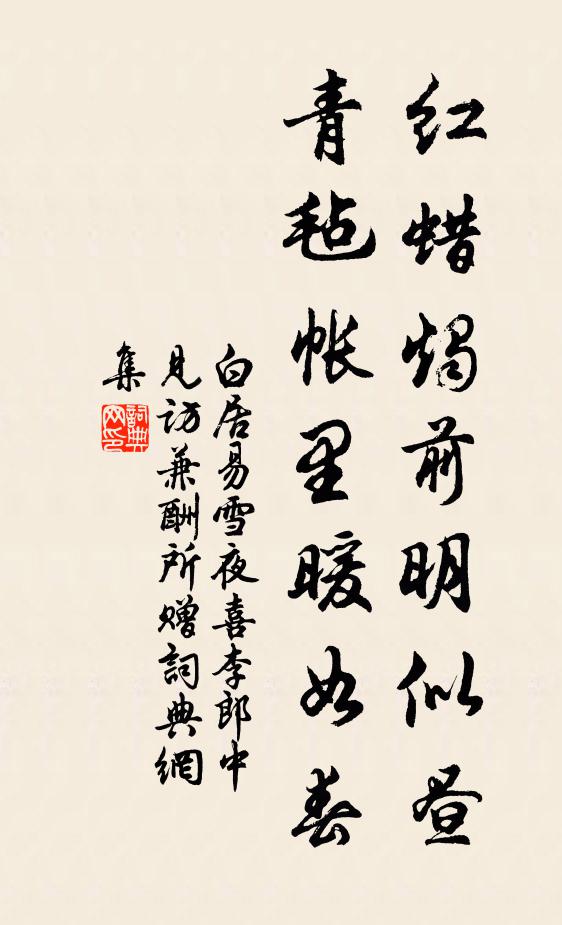 红蜡烛前明似昼
青毡帐里暖如春
白居易雪夜喜李郎中
见访兼酬所赠詞典網
集
詞典
网印